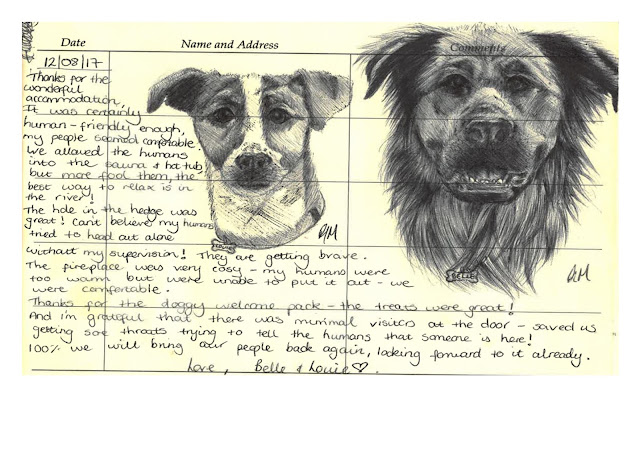 Date Name and Address Comments
12/08/17
Thanks for the
wonderful
accommodation,
It was certainly
human-friendly enough,
my people seemed comfortable!
We allowed the humans
into the sauna & hot tub,
but more fool them, the
best way to relax is in
the river!
The hole in the hedge was
great! Can't believe my humans
tried to head out alone
without my supervision! They are getting brave.
The fireplace was very cosy - my humans were
too warm but were unable to put it out - we
were comfortable.
Thanks for the doggy welcome pack - the treats were great!
And I'm grateful that there was minimal visitors at the door - saved us
getting sore throats trying to tell the humans that someone is here!
100% we will bring our people back again, looking forward to it already.
Love, Belle & Louie